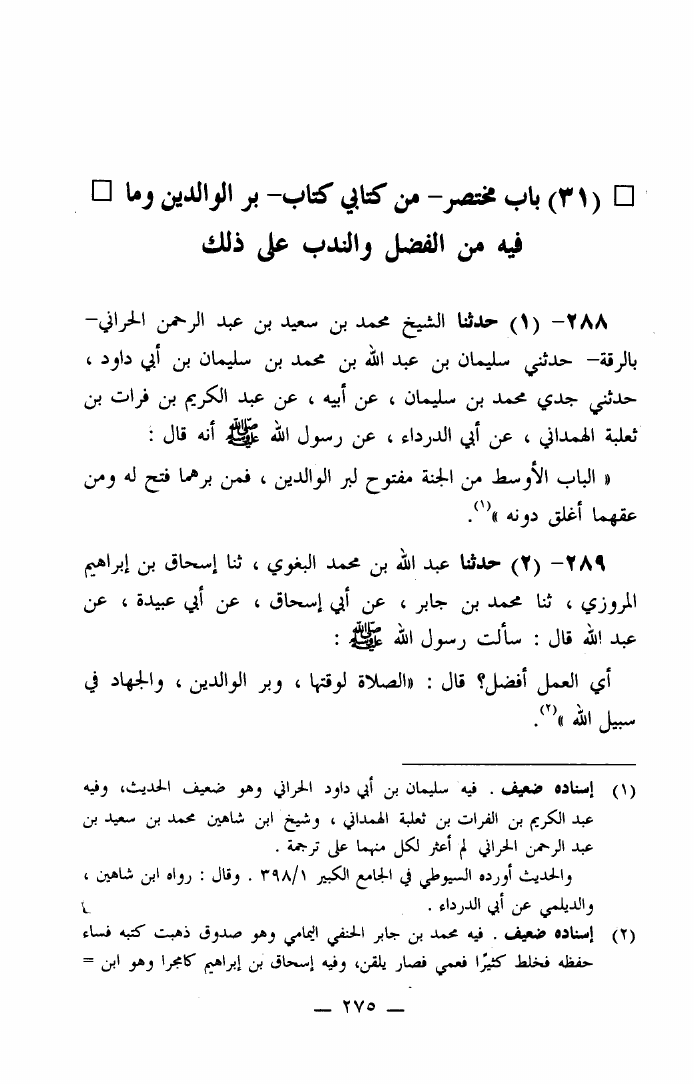 □ (٣١) باب مختصر – من كتابي كتاب – بر الوالدين وما □
فيه من الفضل والندب على ذلك
٢٨٨– (١) حدثنا الشيخ محمد بن سعيد بن عبد الرحمن الحراني –
بالرقة – حدثني سليمان بن عبد الله بن محمد بن سليمان بن أبي داود ،
حدثني جدي محمد بن سليمان ، عن أبيه ، عن عبد الكريم بن فرات بن
ثعلبة الهمداني ، عن أبي الدرداء ، عن رسول الله ﷺ أنه قال :
« الباب الأوسط من الجنة مفتوح لبر الوالدين ، فمن برهما فتح له ومن
عقهما أغلق دونه »(١).
٢٨٩– (٢) حدثنا عبد الله بن محمد البغوي ، ثنا إسحاق بن إبراهيم
المروزي ، ثنا محمد بن جابر ، عن أبي إسحاق ، عن أبي عبيدة ، عن
عبد الله قال : سألت رسول الله ﷺ :
أي العمل أفضل؟ قال : «الصلاة لوقتها ، وبر الوالدين ، والجهاد في
سبيل الله »(٢).
(١) إسناده ضعيف . فيه سليمان بن أبي داود الحراني وهو ضعيف الحديث، وفيه
عبد الكريم بن الفرات بن ثعلبة الهمداني ، وشيخ ابن شاهين محمد بن سعيد بن
عبد الرحمن الحراني لم أعثر لكل منهما على ترجمة .
والحديث أورده السيوطي في الجامع الكبير ٣٩٨/١ . وقال : رواه ابن شاهين ،
والديلمي عن أبي الدرداء .
(٢) إسناده ضعيف . فيه محمد بن جابر الحنفي اليمامي وهو صدوق ذهبت كتبه فساء
حفظه فخلط كثيرًا فعمي فصار يلقن، وفيه إسحاق بن إبراهيم كامجرا وهو ابن =
— ٢٧٥ —